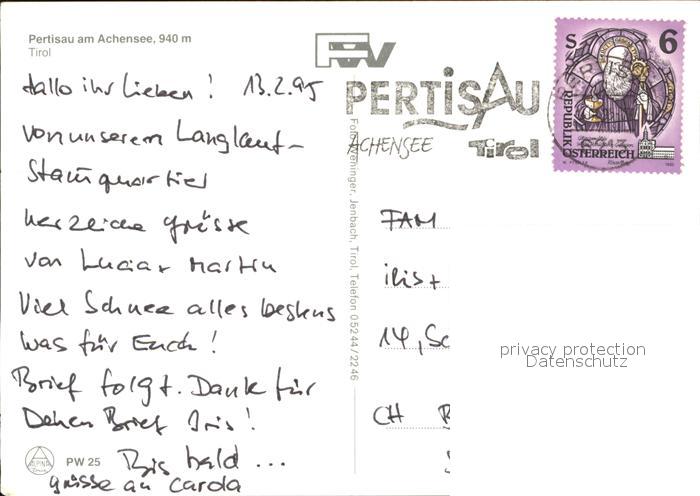 Pertisau am Achensee, 940 m
Tirol
Hallo ihr Lieben! 13.2.95
von unserem Langlauf-
Stamquartier
herzliche grüsse
von Luciar Martin
Viel Schnee alles bestens
was für Euch!
Brief folgt. Dank für
Deinen Brief Iris!
Bis bald ...
grüsse an Carola
ALPINA
PW 25
Foto Weninger, Jenbach, Tirol, Telefon 05244/2246
PERTISAU
ACHENSEE
Tirol
S 6
REPUBLIK
ÖSTERREICH
FAM
iris +
14, Sc
CH
privacy protection
Datenschutz